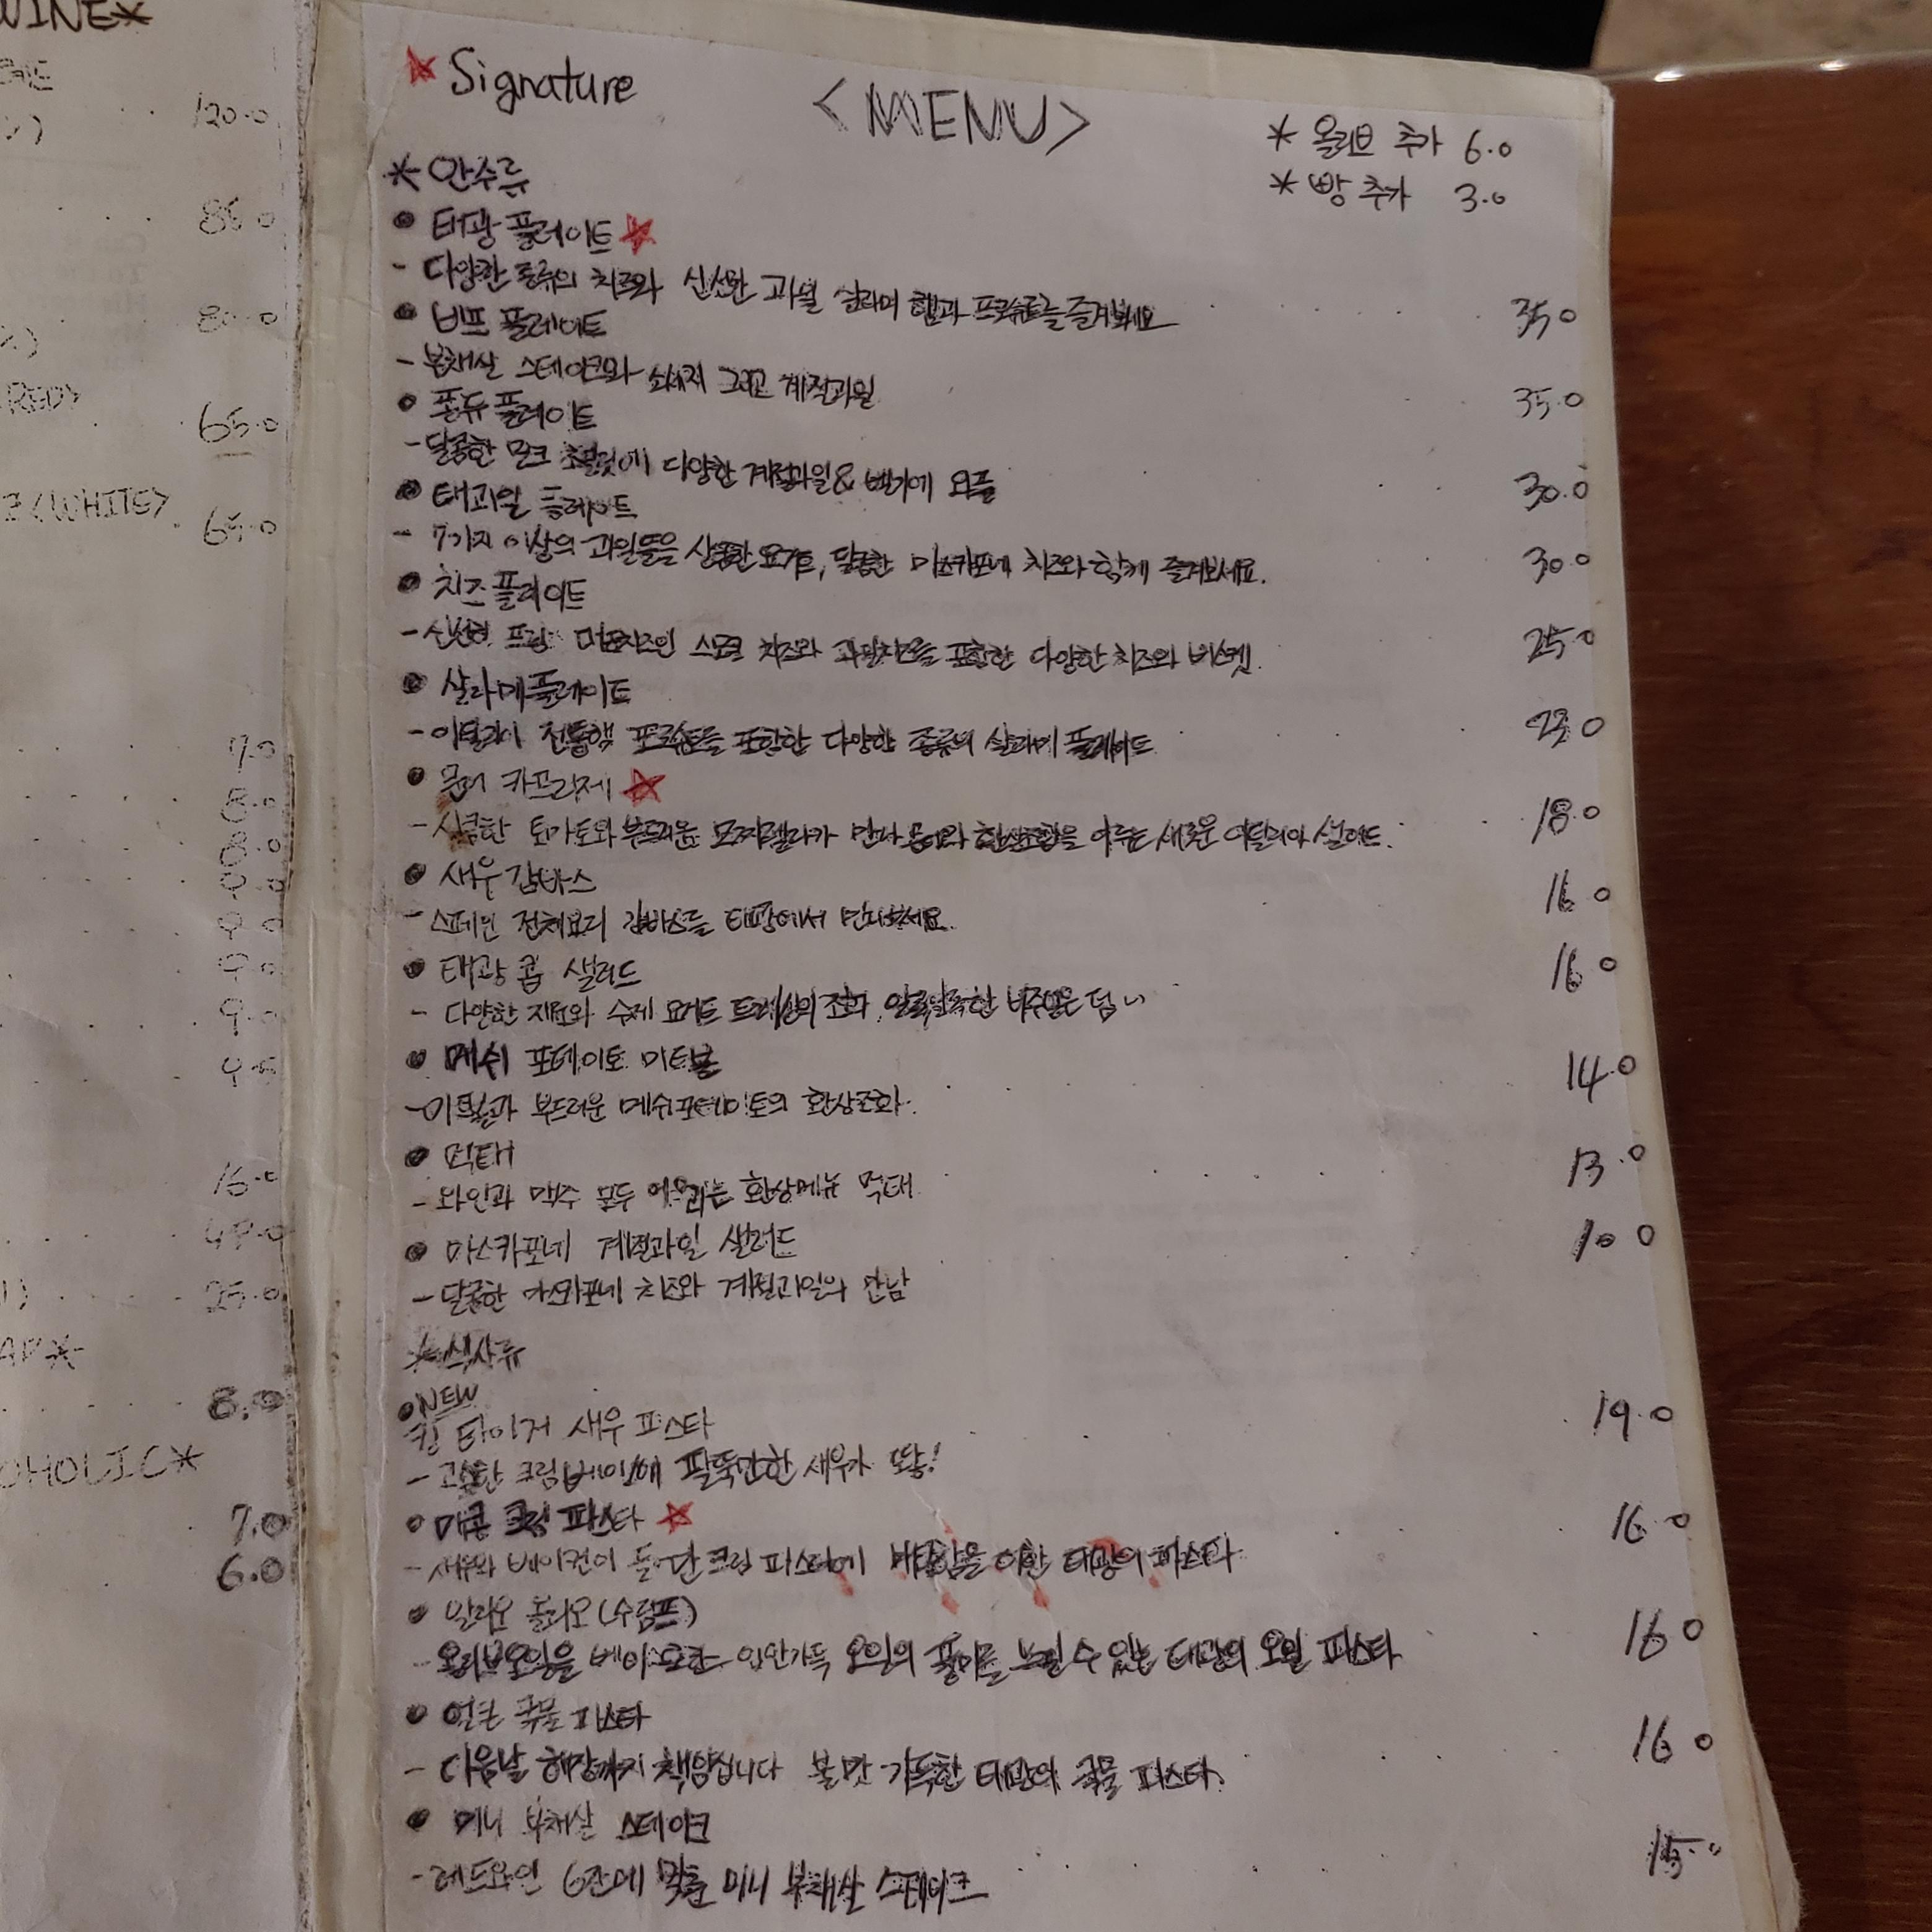 WINE*
120.0
85.0
80.0
RED>
65.0
<WHITE>
65.0
7.0
8.0
8.0
9.0
9.0
9.0
9.0
9.5
15.0
49.0
25.0
8.0
OHOLIC*
7.0
6.0
Signature
<MENU>
* 올리브 추가 6.0
* 빵 추가 3.0
* 안주류
태광 플레이트
- 다양한 종류의 치즈와 신선한 과일 살라미 햄과 프로슈토를 즐겨보세요 35.0
비프 플레이트
- 부채살 스테이크와 소세지 그리고 계절과일 35.0
퐁듀 플레이트
- 달콤한 밀크 초콜릿에 다양한 계절과일 & 벨기에 와플 30.0
태과일 플레이트
- 7가지 이상의 과일들을 상큼한 요거트, 달콤한 마스카포네 치즈와 함께 즐겨보세요. 30.0
치즈 플레이트
- 프랑 스모크 치즈와 과일치즈를 포함한 다양한 치즈와 비스켓. 25.0
살라메 플레이트
- 전통햄 프로슈토를 포함한 다양한 종류의 살라메 플레이트
문어 카프리제
- 상큼한 토마토와 부드러운 모짜렐라가 만나 문어와 환상조합을 이루는 새로운 이탈리아 샐러드. 18.0
새우 감바스 16.0
- 스페인 전체요리 감바스를 태광에서 만나보세요.
태광 콥 샐러드 16.0
- 다양한 재료와 수제 요거트 드레싱의 조화 알록달록한 비주얼은 덤
메쉬 포테이토 미트볼 14.0
- 미트볼과 부드러운 메쉬포테이토의 환상조화.
먹태 13.0
- 와인과 맥주 모두 어울리는 환상메뉴 먹태
마스카포네 계절과일 샐러드 10.0
- 달콤한 마스카포네 치즈와 계절과일의 만남
* 식사류
NEW
킹 타이거 새우 파스타 19.0
- 고소한 크림베이스에 팔뚝만한 새우가 똿!
매콤 크림 파스타 16.0
- 새우와 베이컨이 들어간 크림 파스타에 매콤함을 더한 태광의 파스타
알리오 올리오(쉬림프)
- 올리브오일을 베이스로한 입안가득 오일의 풍미를 느낄 수 있는 태광의 오일 파스타 16.0
얼큰 국물 파스타
- 다음날 해장까지 책임집니다 불맛 가득한 태광의 국물 파스타. 16.0
미니 부채살 스테이크
- 레드와인 안주에 맞춘 미니 부채살 스테이크 15.0